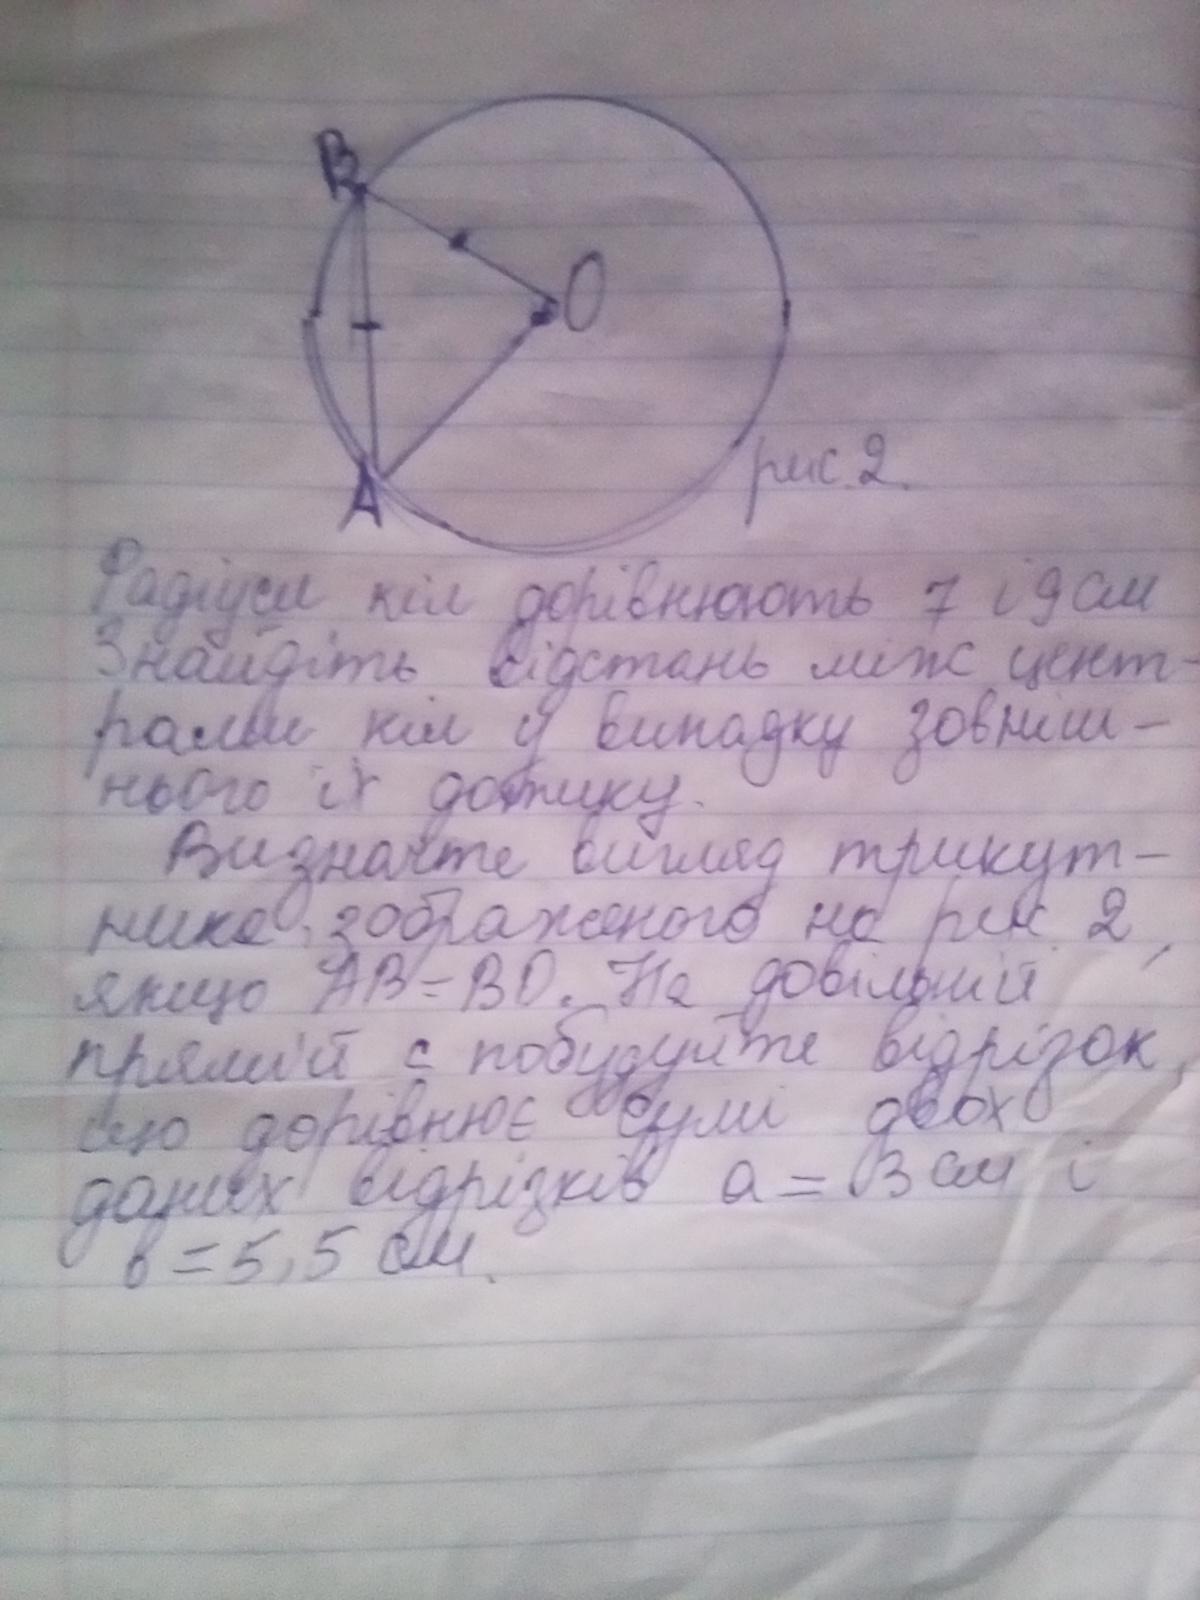 B
O
A
рис. 2.
Радіуси кіл дорівнюють 7 і 9 см
Знайдіть відстань між цент-
рами кіл у випадку зовніш-
нього їх дотику.
Визначте вигляд трикут-
ника зображеного на рис. 2,
якщо AB=BO. На довільній
прямій с побудуйте відрізок,
що дорівнює сумі двох
даних відрізків a = 3 см і
в = 5,5 см.